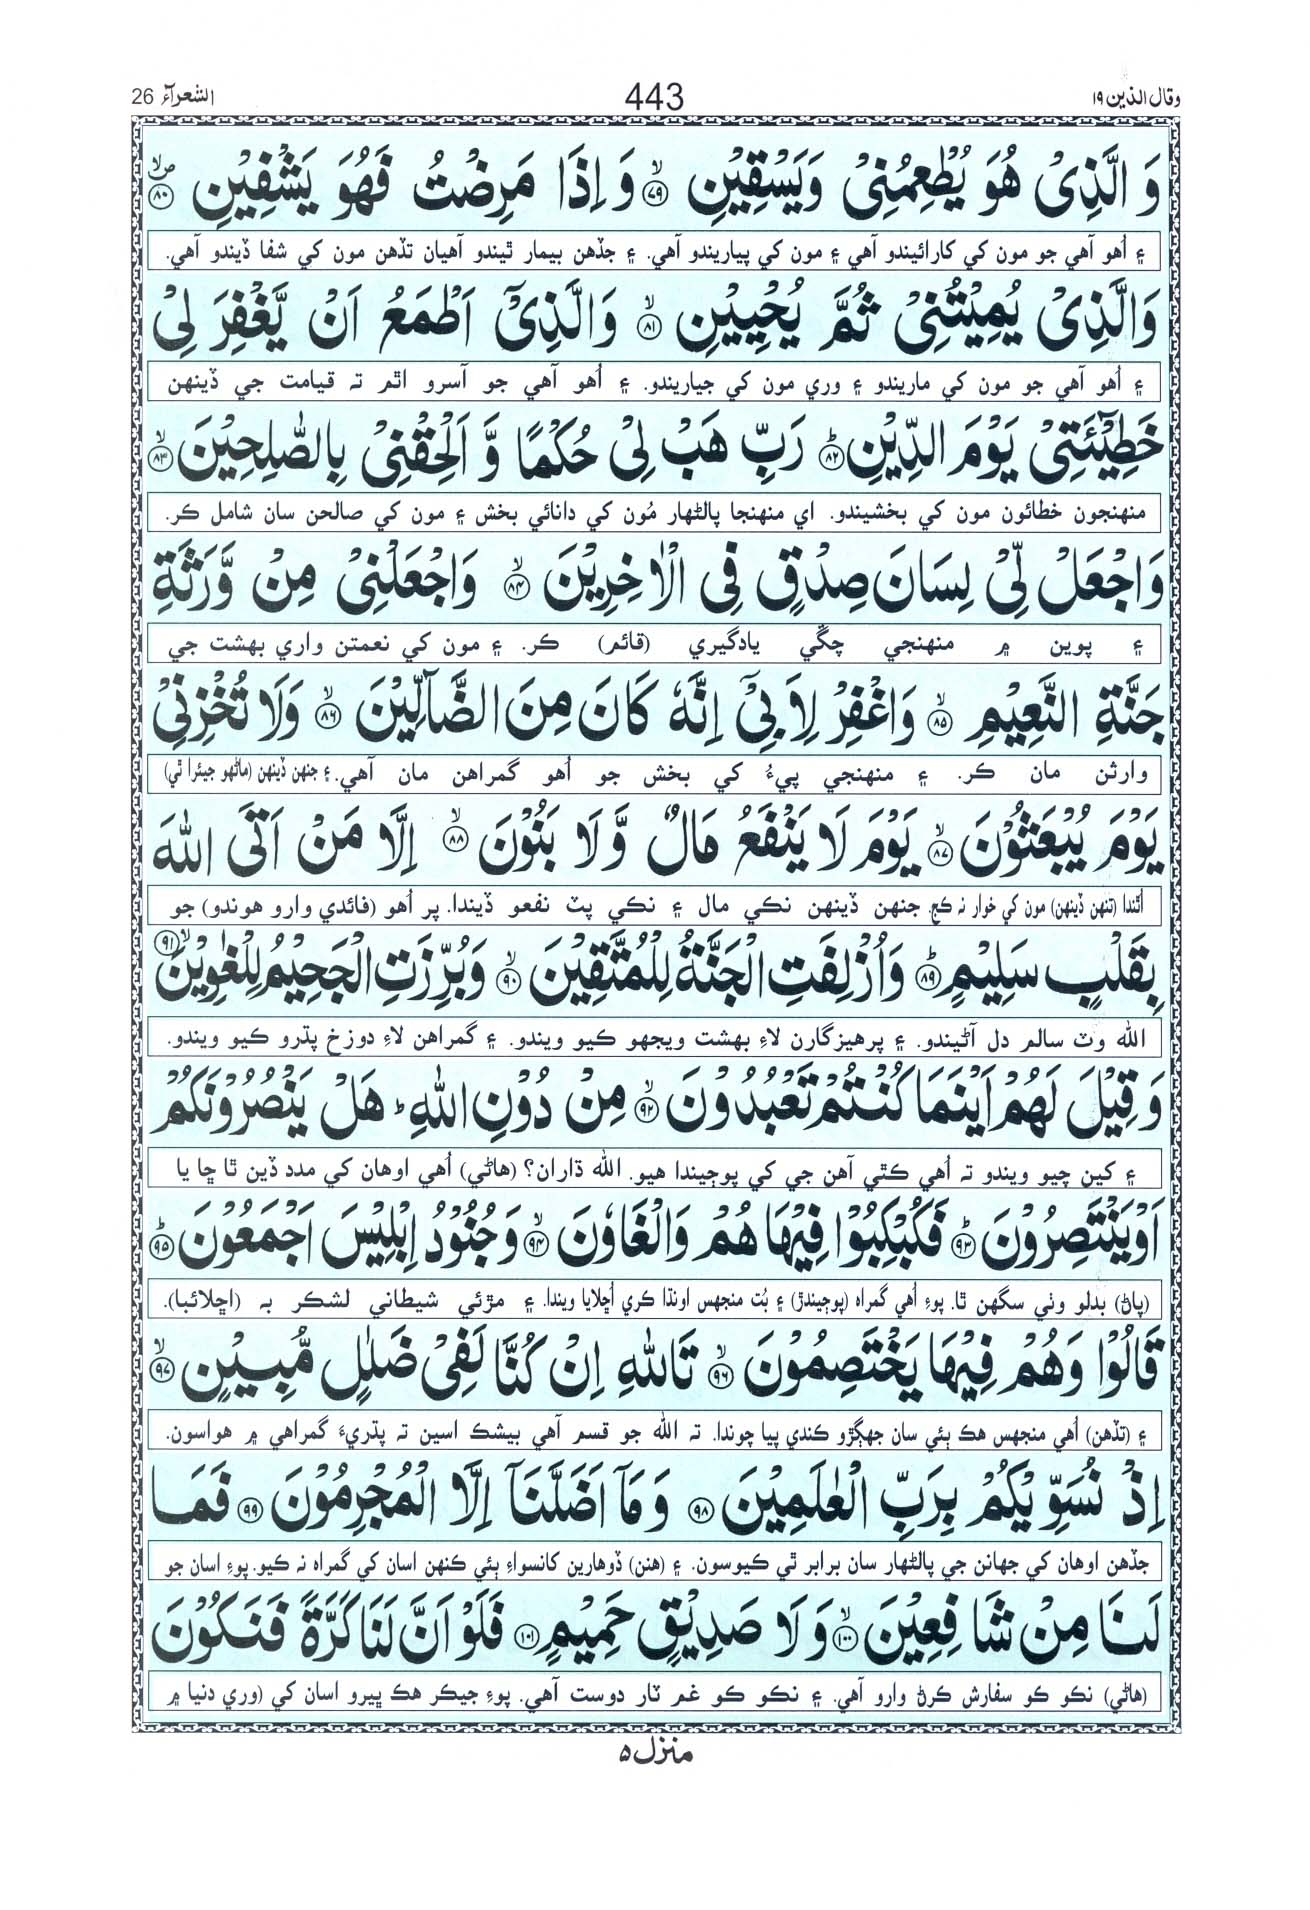 وقال الذين ١٩ 443 الشعرآء 26
وَ الَّذِیْ هُوَ یُطْعِمُنِیْ وَیَسْقِیْنِ ﴿٧٩﴾ۙ وَ اِذَا مَرِضْتُ فَهُوَ یَشْفِیْنِ ﴿٨٠﴾
۽ اُھو آھي جو مون کي کارائيندو آھي ۽ مون کي پياريندو آھي. ۽ جڏھن بيمار ٿيندو آھيان تڏھن مون کي شفا ڏيندو آھي.
وَالَّذِیْ یُمِیْتُنِیْ ثُمَّ یُحْیِیْنِ ﴿٨١﴾ۙ وَالَّذِیْۤ اَطْمَعُ اَنْ یَّغْفِرَ لِیْ
۽ اُھو آھي جو مون کي ماريندو ۽ وري مون کي جياريندو. ۽ اُھو آھي جو آسرو اٿم تہ قيامت جي ڏينھن
خَطِیْٓـَٔتِیْ یَوْمَ الدِّیْنِ ﴿٨٢﴾ؕ رَبِّ هَبْ لِیْ حُكْمًا وَّ اَلْحِقْنِیْ بِالصّٰلِحِیْنَ ﴿٨٣﴾ۙ
منھنجون خطائون مون کي بخشيندو. اي منھنجا پالڻھار مُون کي دانائي بخش ۽ مون کي صالحن سان شامل ڪر.
وَاجْعَلْ لِّیْ لِسَانَ صِدْقٍ فِی الْاٰخِرِیْنَ ﴿٨٤﴾ۙ وَاجْعَلْنِیْ مِنْ وَّرَثَةِ
۽ پوين ۾ منھنجي چڱي يادگيري (قائم) ڪر. ۽ مون کي نعمتن واري بھشت جي
جَنَّةِ النَّعِیْمِ ﴿٨٥﴾ۙ وَاغْفِرْ لِاَبِیْۤ اِنَّهٗ كَانَ مِنَ الضَّآلِّیْنَ ﴿٨٦﴾ۙ وَلَا تُخْزِنِیْ
وارثن مان ڪر. ۽ منھنجي پيءُ کي بخش جو اُھو گمراھن مان آھي. ۽ جنھن ڏينھن (ماڻھو جيئرا ٿي)
یَوْمَ یُبْعَثُوْنَ ﴿٨٧﴾ۙ یَوْمَ لَا یَنْفَعُ مَالٌ وَّ لَا بَنُوْنَ ﴿٨٨﴾ۙ اِلَّا مَنْ اَتَی اللّٰهَ
اُٿندا (تنھن ڏينھن) مون کي خوار نہ ڪج. جنھن ڏينھن نڪي مال ۽ نڪي پٽ نفعو ڏيندا. پر اُھو (فائدي وارو ھوندو) جو
بِقَلْبٍ سَلِیْمٍ ﴿٨٩﴾ؕ وَاُزْلِفَتِ الْجَنَّةُ لِلْمُتَّقِیْنَ ﴿٩٠﴾ۙ وَبُرِّزَتِ الْجَحِیْمُ لِلْغٰوِیْنَ ﴿٩١﴾ۙ
الله وٽ سالم دل آڻيندو. ۽ پرھيزگارن لاءِ بھشت ويجھو ڪيو ويندو. ۽ گمراھن لاءِ دوزخ پڌرو ڪيو ويندو.
وَ قِیْلَ لَهُمْ اَیْنَمَا كُنْتُمْ تَعْبُدُوْنَ ﴿٩٢﴾ۙ مِنْ دُوْنِ اللّٰهِ ؕ هَلْ یَنْصُرُوْنَكُمْ
۽ کين چيو ويندو تہ اُھي ڪٿي آھن جي کي پوڄيندا ھيو. الله ڌاران؟ (ھاڻي) اُھي اوھان کي مدد ڏين ٿا ڇا يا
اَوْیَنْتَصِرُوْنَ ﴿٩٣﴾ؕ فَكُبْكِبُوْا فِیْهَا هُمْ وَالْغَاوٗنَ ﴿٩٤﴾ۙ وَ جُنُوْدُ اِبْلِیْسَ اَجْمَعُوْنَ ﴿٩٥﴾ؕ
(پاڻ) بدلو وٺي سگھن ٿا. پوءِ اُھي گمراہ (پوڄيندڙ) ۽ بُت منجھس اونڌا ڪري اُڇلايا ويندا. ۽ مڙئي شيطاني لشڪر بہ (اڇلائبا).
قَالُوْا وَهُمْ فِیْهَا یَخْتَصِمُوْنَ ﴿٩٦﴾ۙ تَاللّٰهِ اِنْ كُنَّا لَفِیْ ضَلٰلٍ مُّبِیْنٍ ﴿٩٧﴾ۙ
۽ (تڏھن) اُھي منجھس ھڪ ٻئي سان جھڳڙو ڪندي پيا چوندا. تہ الله جو قسم آھي بيشڪ اسين تہ پڌريءَ گمراھي ۾ ھواسون.
اِذْ نُسَوِّیْكُمْ بِرَبِّ الْعٰلَمِیْنَ ﴿٩٨﴾ وَ مَاۤ اَضَلَّنَاۤ اِلَّا الْمُجْرِمُوْنَ ﴿٩٩﴾ فَمَا
جڏھن اوھان کي جھانن جي پالڻھار سان برابر ٿي ڪيوسون. ۽ (ھنن) ڏوھارين کانسواءِ ٻئي ڪنھن اسان کي گمراہ نہ ڪيو. پوءِ اسان جو
لَنَا مِنْ شَافِعِیْنَ ﴿١٠٠﴾ۙ وَ لَا صَدِیْقٍ حَمِیْمٍ ﴿١٠١﴾ فَلَوْ اَنَّ لَنَا كَرَّةً فَنَكُوْنَ
(ھاڻي) نڪو ڪو سفارش ڪرڻ وارو آھي. ۽ نڪو ڪو غم ٽار دوست آھي. پوءِ جيڪر ھڪ ڀيرو اسان کي (وري دنيا ۾
منزل ٥